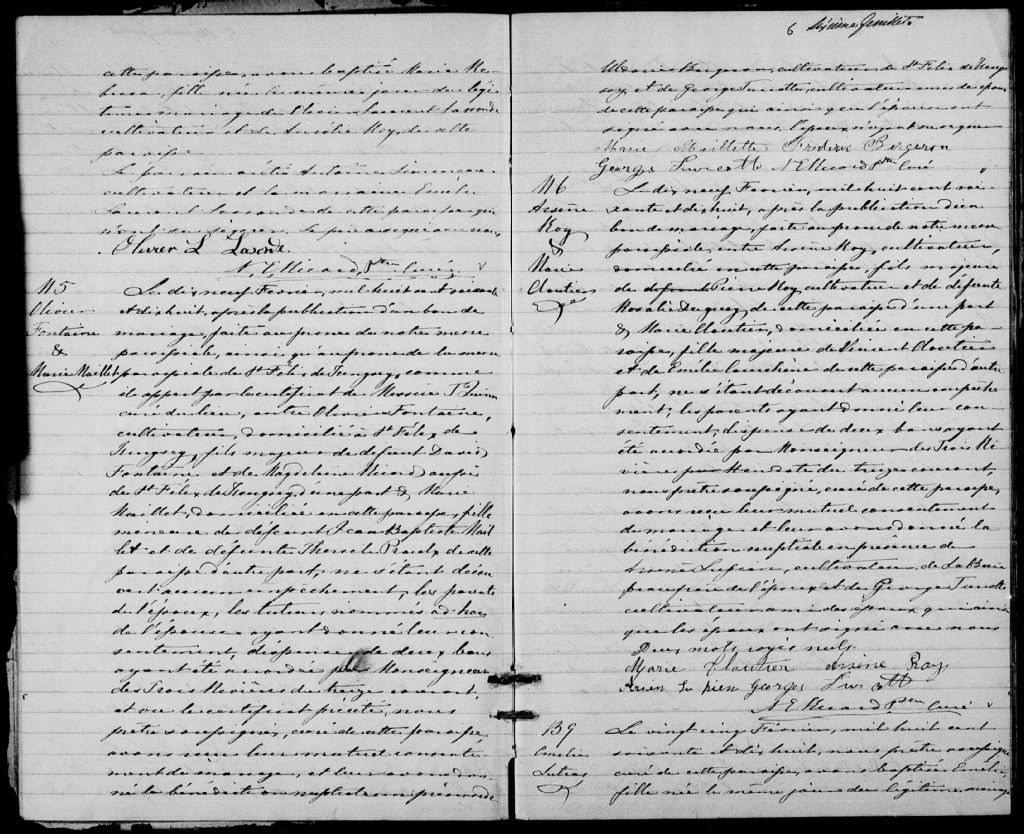 cette paroisse, avons baptisé Marie Re-
becca, fille née le même jour du légi-
time mariage de Olivier Laurent Lasonde
cultivateur et de Aurélie Roy, de cette
paroisse.
Le parrain a été Antoine
cultivateur et la marraine
Laurent Lasonde de cette paroisse qui
n'ont su signer. Le père a signé avec nous.
Olivier L Lasonde
N. E. Ricard, Ptre Curé
M5
Olivier
Fontaine
&
Marie Maillet
Le dix neuf Fevrier, mil huit cent soixante
et dix huit, après la publication d'un ban de
mariage, faite au prone de notre messe
paroissiale, ainsi qu'au prone de la messe
paroissiale de St Félix de Kingsey, comme
il appert par le certificat de Messire Ts Quinn
curé du lieu, entre Olivier Fontaine,
cultivateur, domicilié à St Félix de
Kingsey, fils majeur de defunt David
Fontaine et de Magdeleine aussi
de St Félix de Kingsey, d'une part & Marie
Maillet, domiciliée en cette paroisse, fille
mineure de défunt Jean Baptiste Mail
let et de défunte Therese Proulx de cette
paroisse d'autre part, ne s'étant décou
vert aucun empêchement, les parents
de l'époux, les tuteurs, nommés ad hoc
de l'épouse ayant donné leur con-
sentement, dispense de deux bans
ayant été accordée par Monseigneur
des Trois Rivières du treize courant,
et vu le certificat précité, nous
prêtre soussigné, curé de cette paroisse
avons reçu leur mutuel consente
ment de mariage, et leur avons don-
né la bénédiction nuptiale en présence
6 Sixième feuillet
Bergeron, cultivateur de St Félix de Kings
sey, et de George Turcotte, cultivateur amis des époux
de cette paroisse qui ainsi que l'épouse ont
signé avec nous, l'époux n'ayant su signer
Marie Maillette Frederic Bergeron
Georges Turcott N E Ricard ptre Curé
M6
Arsène
Roy
&
Marie
Cloutier
Le dix neuf Fevrier, mil huit cent soi
xante et dix huit, après la publication d'un
ban de mariage, faite au prone de notre messe
paroissiale, entre Arsène Roy, cultivateur,
domicilié en cette paroisse, fils majeur
de defunt Pierre Roy, cultivateur et de defunte
Rosalie de cette paroisse d'une part
& Marie Cloutier, domiciliée en cette pa-
roisse, fille majeure de Vincent Cloutier
et de Emélie de cette paroisse d'autre
part, ne s'étant découvert aucun empêche
ment; les parents ayant donné leur con-
sentement, dispense de deux bans ayant
été accordée par Monseigneur des Trois Ri-
vières par Mandat du treize courant,
nous prêtre soussigné, curé de cette paroisse,
avons reçu leur mutuel consentement
de mariage et leur avons donné la
bénédiction nuptiale en présence de
cultivateur, de La Baie
de l'époux et de George Turcotte
cultivateur ami des époux, qui ainsi
que les époux ont signé avec nous
Deux mots rayés nuls.
Marie Cloutier Arsène Roy
Georges Turcott
N E Ricard Ptre Curé
B9
Emélie
Le vingt cinq Février, mil huit cent
soixante et dix huit, nous prêtre soussigné
curé de cette paroisse, avons baptisé Emélie,
fille née le même jour du légitime mariage